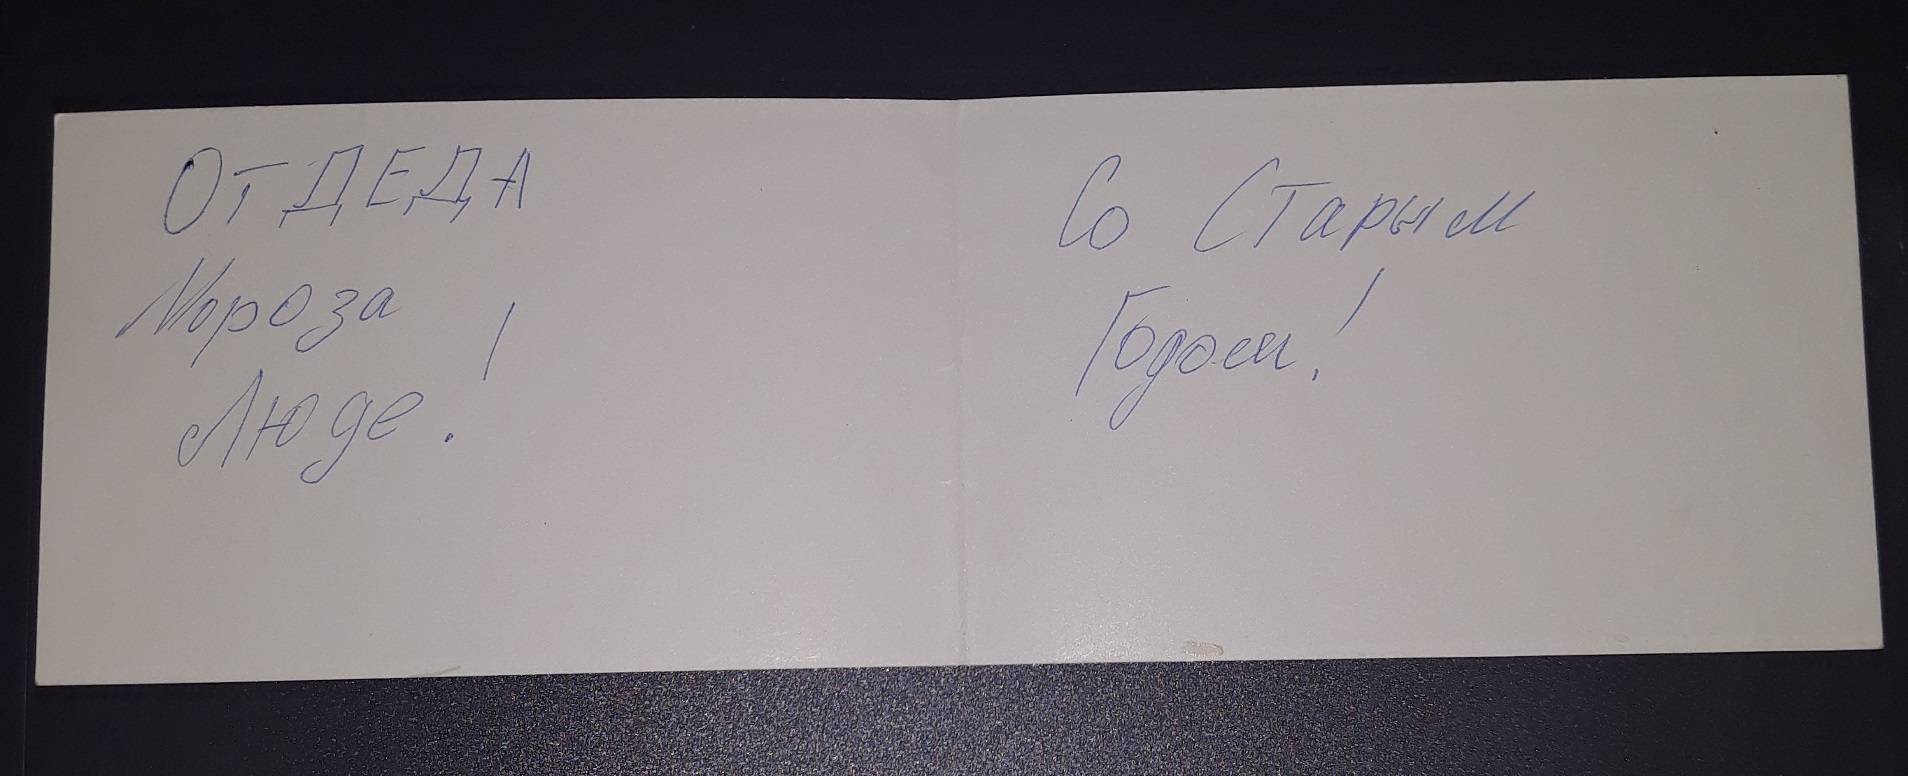 От ДЕДА
Мороза
Люде!
Со Старым
Годом!